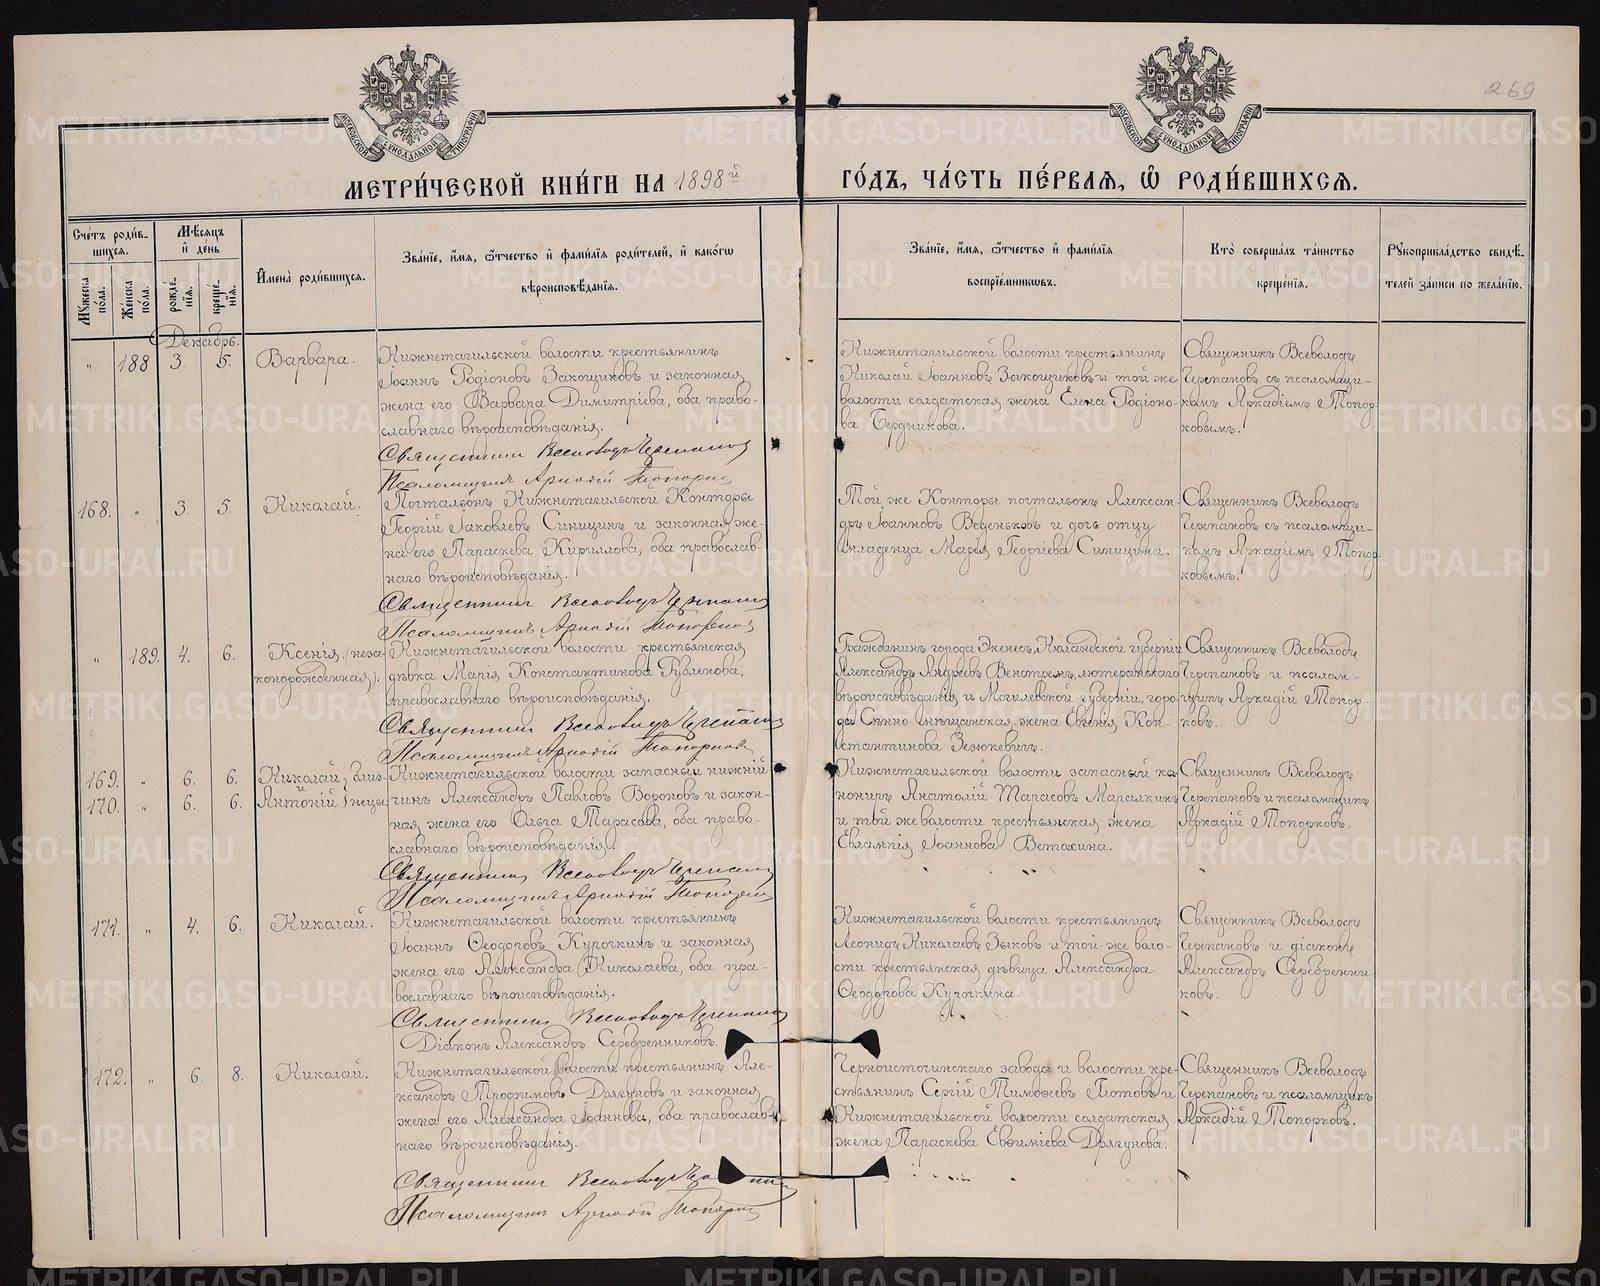 269
МОСКОВСКОЙ СѴНОДАЛЬНОЙ ТИПОГРАФІИ
МОСКОВСКОЙ СѴНОДАЛЬНОЙ ТИПОГРАФІИ
МЕТРИ́ЧЕСКОЙ КНИ́ГИ НА 1898й ГО́ДЪ, ЧА́СТЬ ПЕ́РВАѦ, Ѽ РОДИ́ВШИХСѦ.
Сче́тъ роди́в-
шихсѧ.
Мꙋжеска по́ла.
Же́нска по́ла.
Мѣ́сѧцъ и҆ де́нь
рожде́-нїѧ.
креще́-нїѧ.
И҆мена̀ роди́вшихсѧ.
Зва́нїе, и҆́мѧ, ѻ҆́тчество и҆ фами́лїѧ роди́телей, и҆ како́гѡ
вѣроисповѣ́данїѧ.
Зва́нїе, и҆́мѧ, ѻ҆́тчество и҆ фами́лїѧ
воспрїе́мникѡвъ.
Кто̀ соверша́лъ та́инство
креще́нїѧ.
Рꙋкоприкла́дство свидѣ́-
телей за́писи по жела́нїю.
Декабрь.
" 188 3. 5. Варвара.
Нижнетагильской волости крестьянинъ
Іоаннъ Родіоновъ Закощиковъ и законная
жена его Варвара Димитріева, оба право-
славнаго вѣроисповѣданія.
Священникъ Всеволодъ Черепановъ
Псаломщикъ Аркадій Топорковъ
Нижнетагильской волости крестьянинъ
Николай Іоанновъ Закощиковъ и той же
волости солдатская жена Елена Родіоно-
ва Бердникова.
Священникъ Всеволодъ
Черепановъ съ псаломщи-
комъ Аркадіемъ Топор-
ковымъ.
168. " 3. 5. Николай.
Почталіонъ Нижнетагильской Конторы
Георгій Іаковлевъ Синицинъ и законная же-
на его Параскева Кириллова, оба православ-
наго вѣроисповѣданія.
Священникъ Всеволодъ Черепановъ
Псаломщикъ Аркадій Топорковъ
Той же Конторы почталіонъ Алексан-
дръ Іоанновъ Веденьковъ и дочь отцу
младенца Марія Георгіева Синицина.
Священникъ Всеволодъ
Черепановъ съ псаломщи-
комъ Аркадіемъ Топор-
ковымъ.
" 189. 4. 6. Ксенія. (неза-
конорожденная).
Нижнетагильской волости крестьянская
дѣвка Марія Константинова
православнаго вѣроисповѣданія.
Священникъ Всеволодъ Черепановъ
Псаломщикъ Аркадій Топорковъ
Гражданинъ города Экенесъ, Нюландской губерніи
Александръ Андреевъ Венстремъ, лютеранскаго
вѣроисповѣданія и Могилевской губерніи, горо-
да Сѣнно мѣщанская жена Евгенія Кон-
стантинова Зезюкевичъ.
Священникъ Всеволодъ
Черепановъ и псалом-
щикъ Аркадій Топор-
ковъ.
169. " 6. 6. Николай, близ-
и
170. " 6. 6. Антоній нецы
Нижнетагильской волости запасный нижній
чинъ Александръ Павловъ Вороновъ и закон-
ная жена его Ольга Тарасова, оба право-
славнаго вѣроисповѣданія.
Священникъ Всеволодъ Черепановъ
Псаломщикъ Аркадій Топорковъ
Нижнетагильской волости запасный ка-
нониръ Анатолій Тарасовъ
и той же волости крестьянская жена
Евлампія Іоаннова Ветохина.
Священникъ Всеволодъ
Черепановъ и псаломщикъ
Аркадій Топорковъ.
171. " 4. 6. Николай.
Нижнетагильской волости крестьянинъ
Іоаннъ Ѳеодоровъ Курочкинъ и законная
жена его Александра Николаева, оба пра-
вославнаго вѣроисповѣданія.
Священникъ Всеволодъ Черепановъ
Діаконъ Александръ Серебренниковъ.
Нижнетагильской волости крестьянинъ
Леонидъ Николаевъ Зыковъ и той-же воло-
сти крестьянская дѣвица Александра
Ѳеодорова Курочкина.
Священникъ Всеволодъ
Черепановъ и діаконъ
Александръ Серебренни-
ковъ.
172. " 6. 8. Николай.
Нижнетагильской волости крестьянинъ Але-
ксандръ Трофимовъ Драгуновъ и законная
жена его Александра Іоаннова, оба православ-
наго вѣроисповѣданія.
Священникъ Всеволодъ Черепановъ
Псаломщикъ Аркадій Топорковъ
Черноисточинскаго завода и волости кре-
стьянинъ Сергій Тимофеевъ Глотовъ и
Нижнетагильской волости солдатская
жена Параскева Евѳиміева Драгунова.
Священникъ Всеволодъ
Черепановъ и псаломщикъ
Аркадій Топорковъ.
METRIKI.GASO-URAL.RU